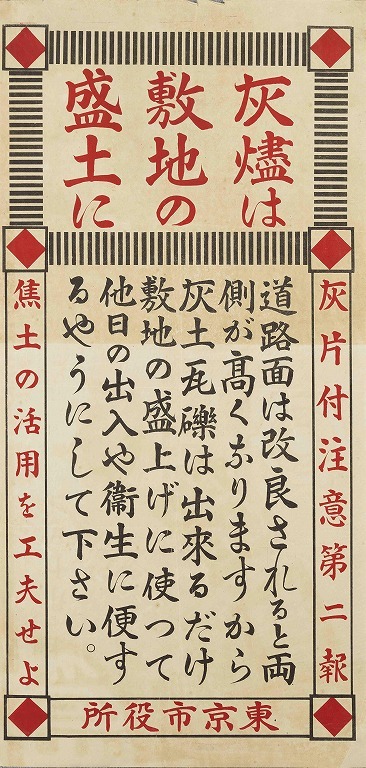 灰燼は
敷地の
盛土に
灰片付注意第二報
道路面は改良されると両
側が高くなりますから
灰土瓦礫は出來るだけ
敷地の盛上げに使つて
他日の出入や衛生に便す
るやうにして下さい。
焦土の活用を工夫せよ
東京市役所